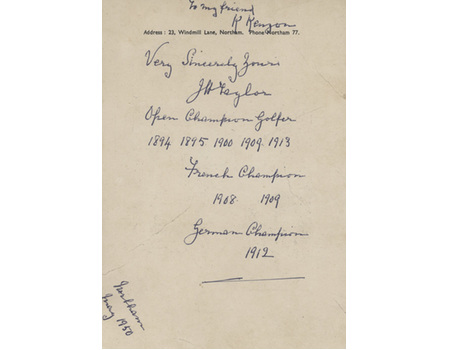 To my friend
R Kenyon
Address : 23, Windmill Lane, Northam. Phone Northam 77.
Very Sincerely Yours
JH Taylor
Open Champion Golfer
1894 1895 1900 1909 1913
French Champion
1908 1909
German Champion
1912
Northam
May 1950